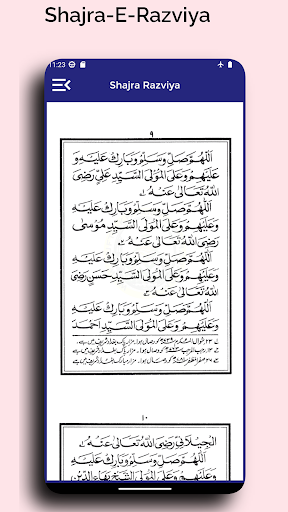 Shajra-E-Razviya
11:23
Shajra Razviya
٩
اَللّٰهُمَّ صَلِّ وَسَلِّمْ وَبَارِكْ عَلَيْهِ وَ
عَلَيْهِمْ وَعَلَى الْمَوْلَى السَّيِّدِ عَلِيٍّ رَضِيَ
اللّٰهُ تَعَالٰى عَنْهُ
اَللّٰهُمَّ صَلِّ وَسَلِّمْ وَبَارِكْ عَلَيْهِ
وَعَلَيْهِمْ وَعَلَى الْمَوْلَى السَّيِّدِ مُوْسٰى
رَضِيَ اللّٰهُ تَعَالٰى عَنْهُ
اَللّٰهُمَّ صَلِّ وَسَلِّمْ وَبَارِكْ عَلَيْهِ وَ
عَلَيْهِمْ وَعَلَى الْمَوْلَى السَّيِّدِ حَسَنٍ رَضِيَ
اللّٰهُ تَعَالٰى عَنْهُ
اَللّٰهُمَّ صَلِّ وَسَلِّمْ وَبَارِكْ عَلَيْهِ
وَعَلَيْهِمْ وَعَلَى الْمَوْلَى السَّيِّدِ اَحْمَدَ
١٠
الْجِيْلَانِيِّ رَضِيَ اللّٰهُ تَعَالٰى عَنْهُ
اَللّٰهُمَّ صَلِّ وَسَلِّمْ وَبَارِكْ عَلَيْهِ
وَعَلَيْهِمْ وَعَلَى الْمَوْلَى الشَّيْخِ بَهَاءِ الدِّيْنِ